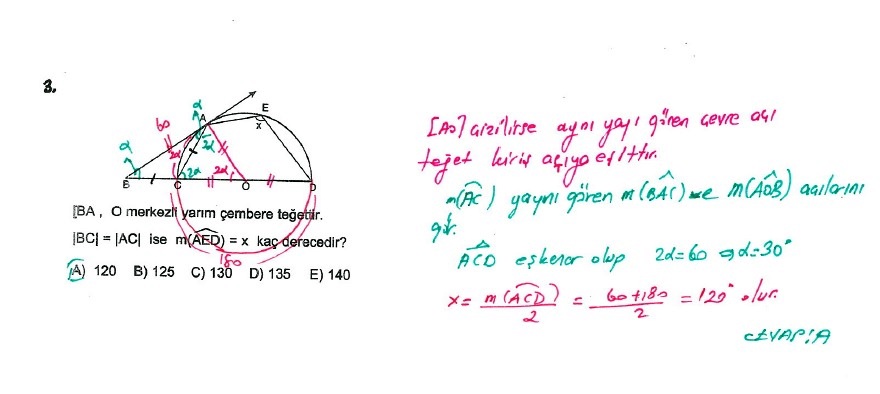 3.
α
A
E
60
x
α
2α
2α
2α
2α
B
C
O
D
[BA , O merkezli yarım çembere teğettir.
|BC| = |AC| ise m(AED) = x kaç derecedir?
180
A) 120 B) 125 C) 130 D) 135 E) 140
[AO] çizilirse aynı yayı gören çevre açı
teğet kiriş açıya eşittir.
m(AC) yayını gören m(BAC) ve m(AOB) açılarını
gör.
ACO eşkenar olup 2α=60 ⇒ α=30°
x= m(ACD)/2 = 60+180/2 = 120° olur.
CEVAP:A